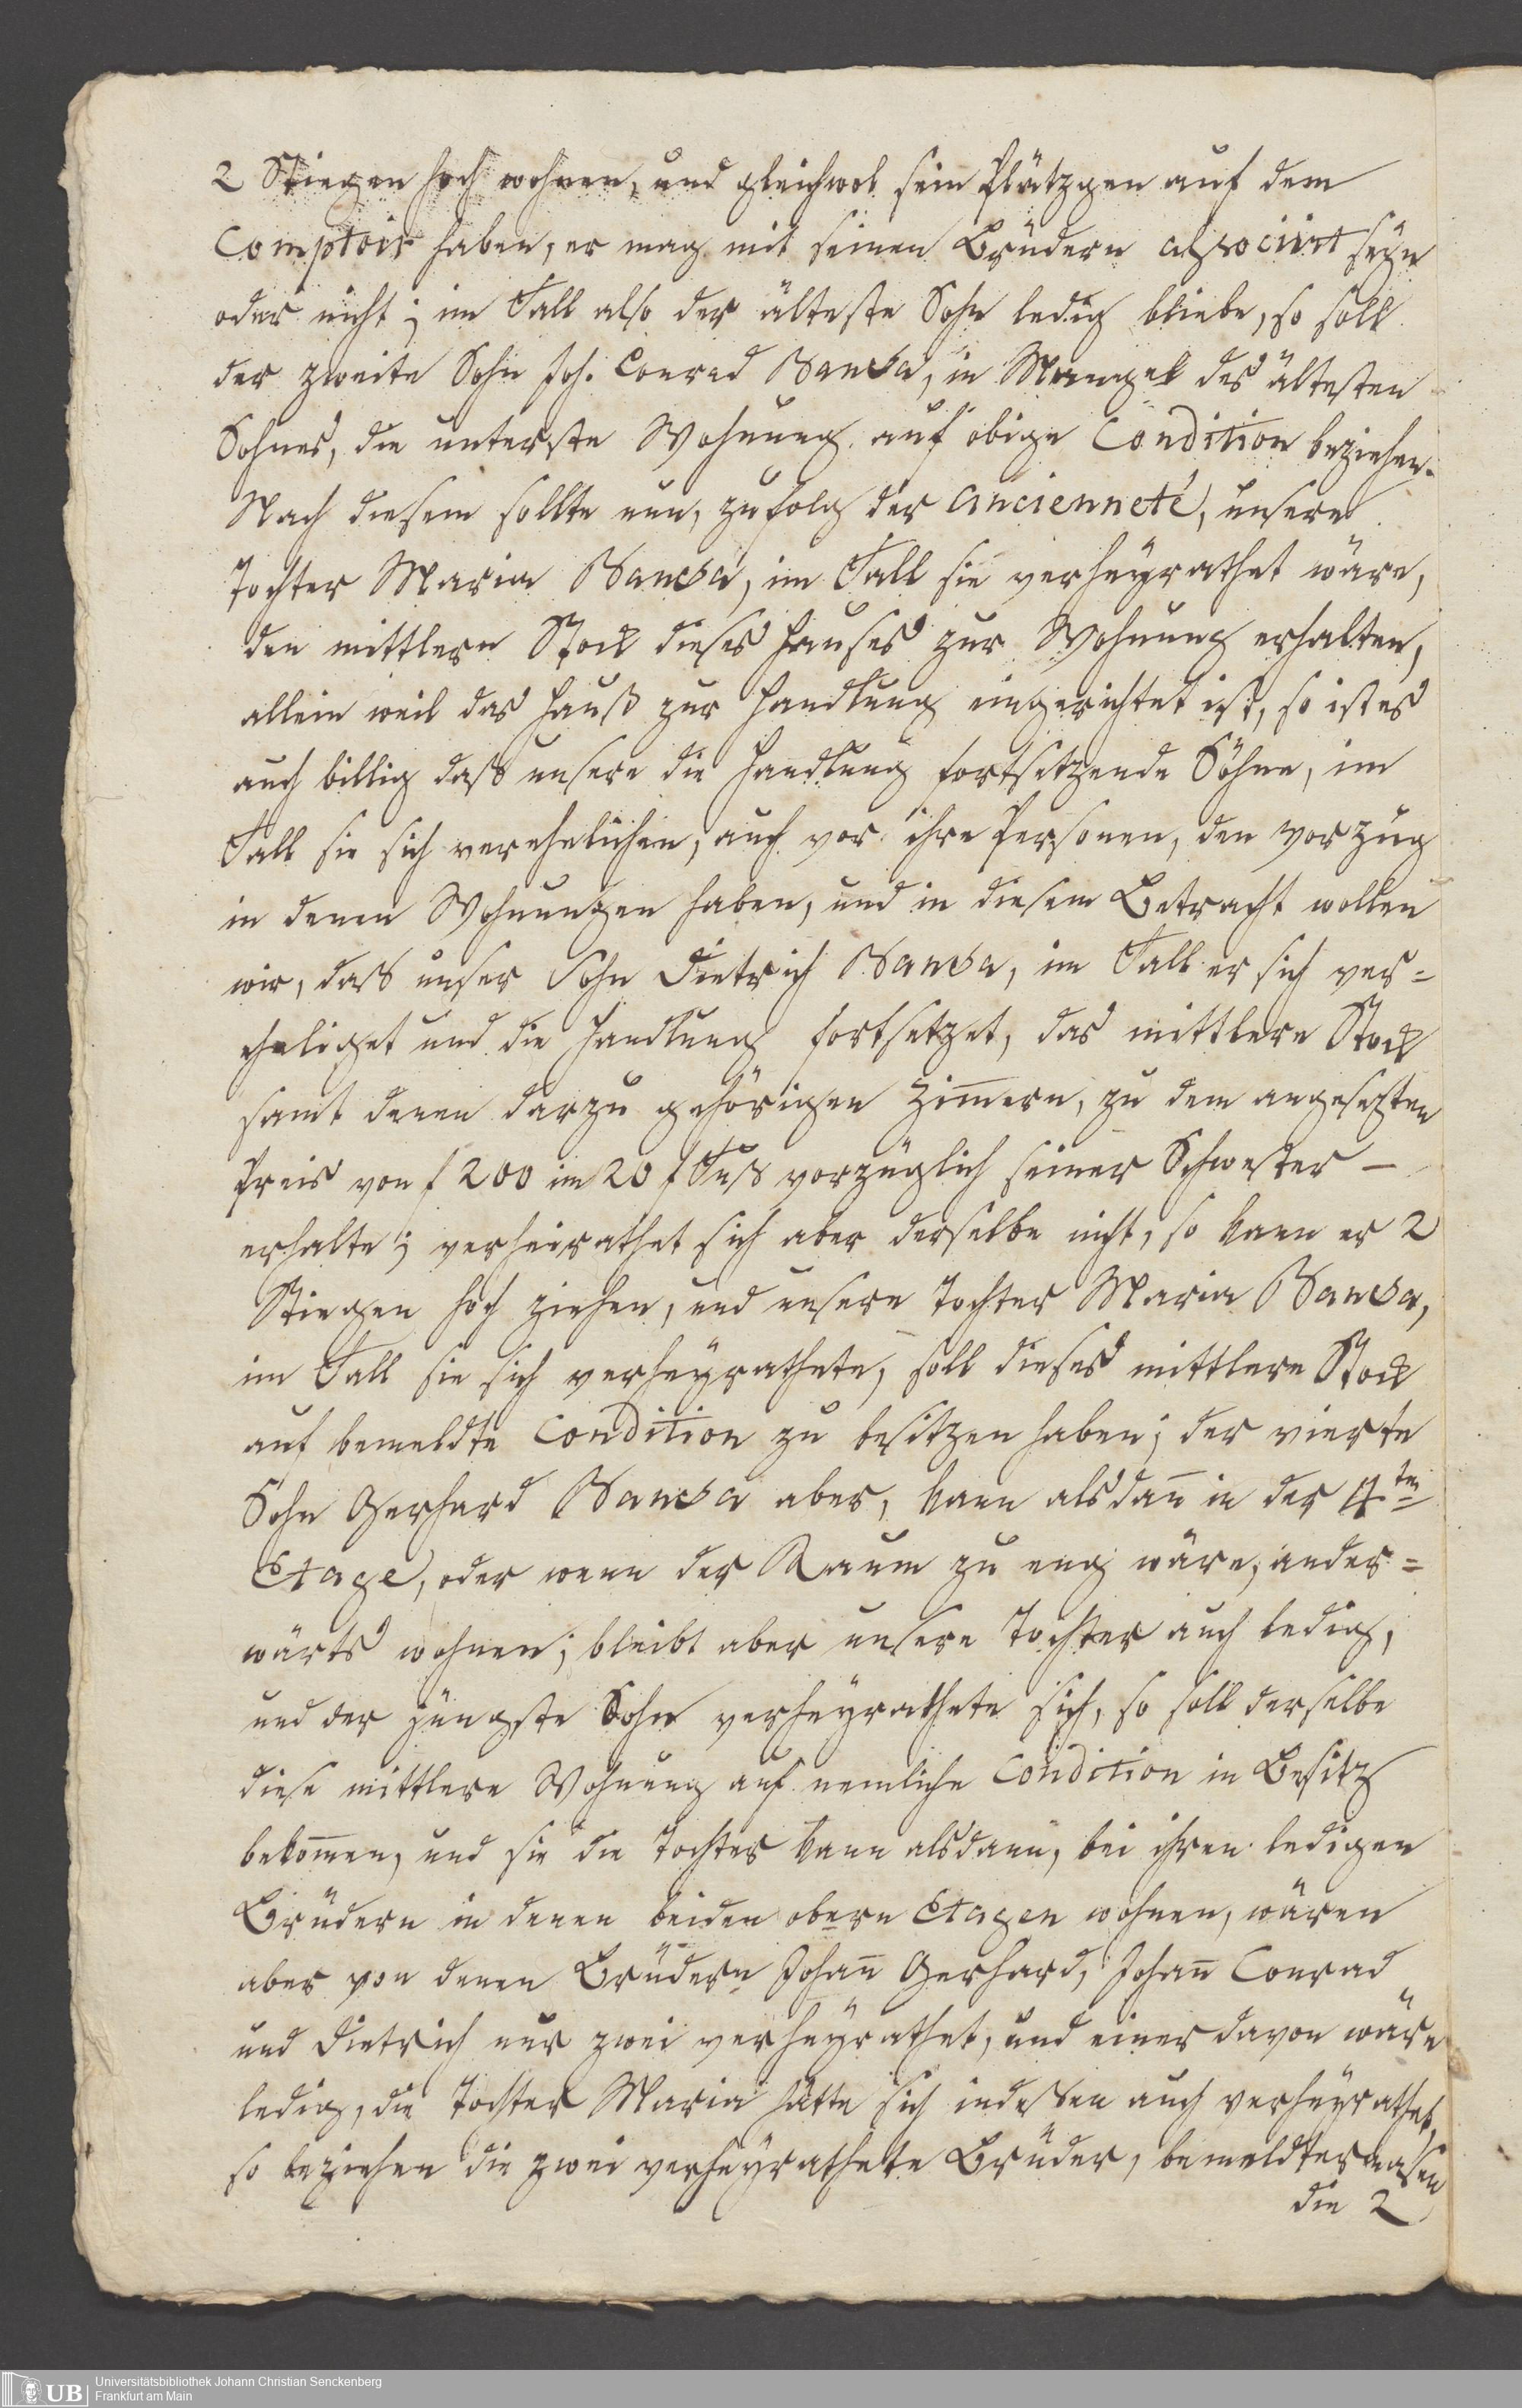 2 Stiegen hoch wohnen, und gleichwol sein Plätzgen auf dem
Comptoir haben, er mag mit seinen Brüdern associirt seyn
oder nicht; im Fall also der älteste Sohn ledig bliebe, so soll
der zweite Sohn Joh. Conrad Bansa, in Mangel des ältesten
Sohnes, die unterste Wohnung auf obige Condition beziehen.
Nach diesem sollte nun, zufolg der ancienneté, unsere
Tochter Maria Bansa, im Fall sie verheyrathet wäre,
den mittlern Stock dieses Hauses zur Wohnung erhalten,
allein weil das Hauß zur Handlung eingerichtet ist, so ist es
auch billig daß unsere die Handlung fortsetzende Söhne, im
Fall sie sich verehelichen, auch vor ihre Personen, den Vorzug
in denen Wohnungen haben, und in diesem Betracht wollen
wir, daß unser Sohn Dietrich Bansa, im Fall er sich ver=
eheliget und die Handlung fortsetzet, das mittlere Stock
samt denen darzu gehörigen Zim̄ern, zu dem angesetzten
Preis von f 200 im 20 f Fuß vorzüglich seiner Schwester –
erhalte; verheirathet sich aber derselbe nicht, so kann er 2
Stiegen hoch ziehen, und unsere Tochter Maria Bansa,
im Fall sie sich verheyrathete, soll dieses mittlere Stock
auf bemeldte Condition zu besitzen haben; der vierte
Sohn Gerhard Bansa aber, kann alsdan̄ in der 4ten
Etage, oder wenn der Raum zu eng wäre, ander=
wärts wohnen; bleibt aber unsere Tochter auch ledig,
und der jüngste Sohn verheyrathete sich, so soll derselbe
diese mittlere Wohnung auf nemliche Condition in Besitz
bekom̄en, und sie die Tochter kann alsdann, bei ihren ledigen
Brüdern in denen beiden obern Etagen wohnen, wären
aber von denen Brüdern Johan̄ Gerhard, Johan̄ Conrad
und Dietrich nur zwei verheyrathet, und einer davon wäre
ledig, die Tochter Maria hätte sich indeßen auch verheyrathet,
so beziehen die zwei verheyrathete Brüder, bemeldtermasen
die 2
Universitätsbibliothek Johann Christian Senckenberg
UB Frankfurt am Main